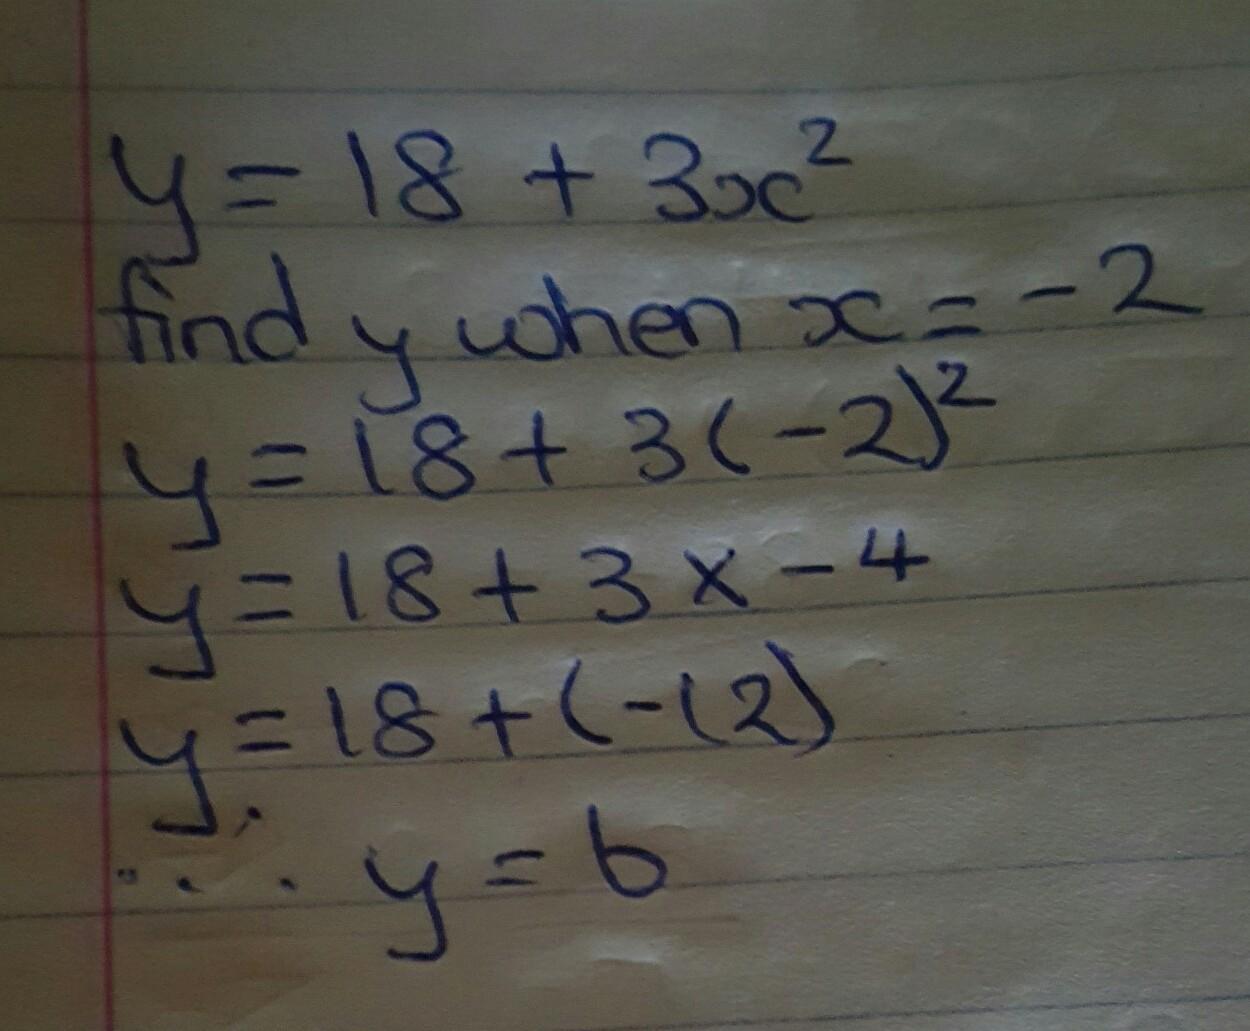 y = 18 + 3x²
find y when x = -2
y = 18 + 3(-2)²
y = 18 + 3 x - 4
y = 18 + (-12)
∴ y = 6